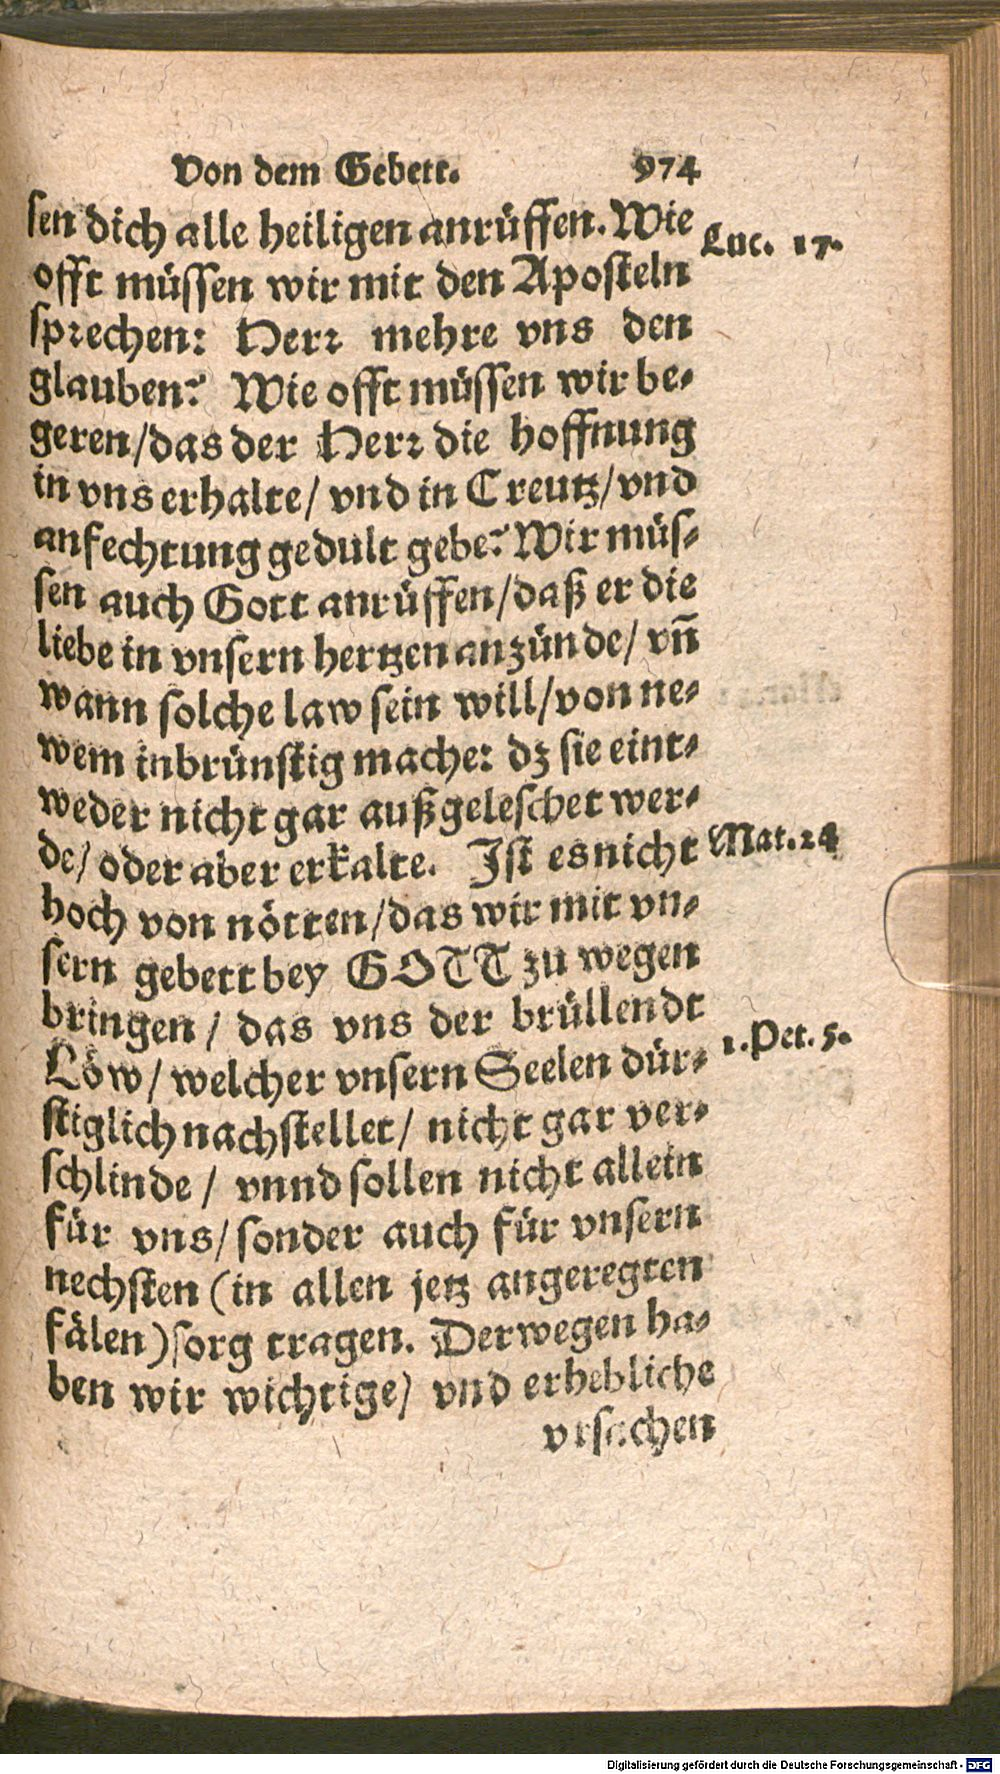 Von dem Gebett. 974
sen dich alle heiligen anrüffen. Wie
Luc. 17.
offt müssen wir mit den Aposteln
sprechen: Herr mehre vns den
glauben? Wie offt müssen wir be-
geren/das der Herr die hoffnung
in vns erhalte/ vnd in Creutz/vnd
anfechtung gedult gebe? Wir müs-
sen auch Gott anrüffen/daß er die
liebe in vnsern hertzen anzünde/ vn̄
wann solche law sein will/von ne-
wem inbrünstig mache: dz sie eint-
weder nicht gar außgeleschet wer-
de/ oder aber erkalte. Ist es nicht
Mat. 24
hoch von nötten/das wir mit vn-
sern gebett bey GOTT zu wegen
bringen/ das vns der brüllendt
1. Pet. 5.
Löw/ welcher vnsern Seelen dür-
stiglich nachstellet/ nicht gar ver-
schlinde/ vnnd sollen nicht allein
für vns/ sonder auch für vnsern
nechsten (in allen jetz angeregten
fälen) sorg tragen. Derwegen ha-
ben wir wichtige/ vnd erhebliche
vrsachen
Digitalisierung gefördert durch die Deutsche Forschungsgemeinschaft - DFG